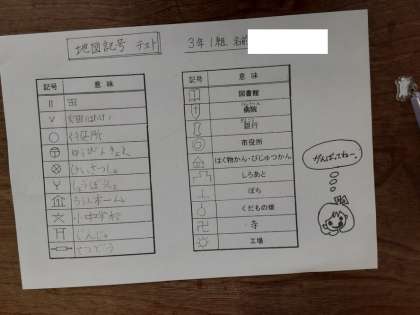 地図記号 テスト
3年1組 名前
記号 意味
田
交番所
ゆうびんきょく
けいさつしょ
しょうぼうしょ
ろう人ホーム
小中学校
じんじゃ
てつどう
記号 意味
図書館
病院
銀行
市役所
はく物かん・びじゅつかん
しろあと
ぼち
くだもの畑
寺
工場
がんばってねー。